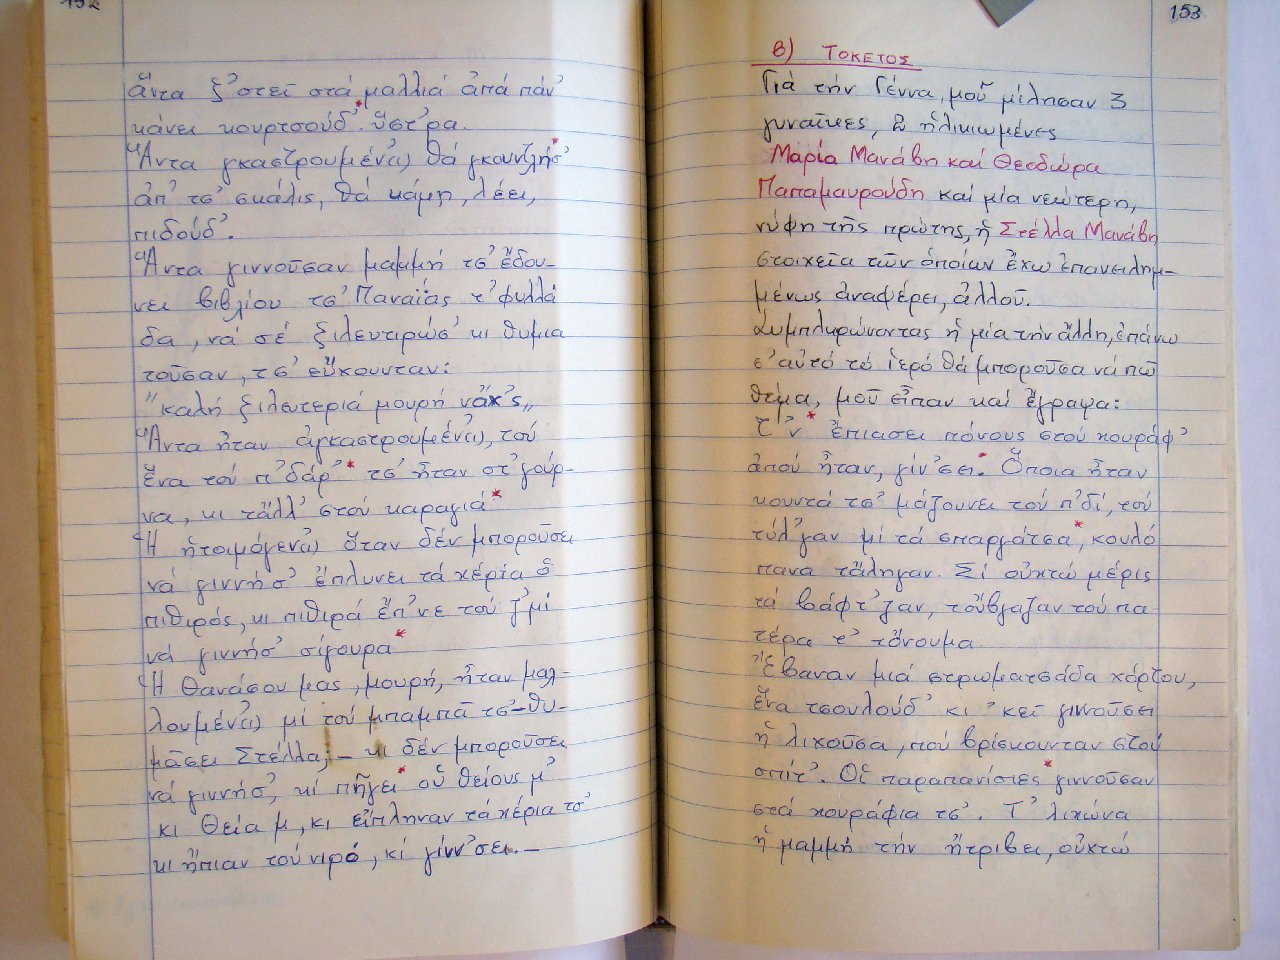 152
ἄντα ξ᾽στεῖ στά μαλλιά ἀπά πάν᾽
κάνει κουρτσούδ᾽.* ὕστ᾽ρα.
Ἄντα γκαστρουμέν(ι) θά γκουντλήσ᾽*
ἀπ᾽ τσ᾽ σκάλις, θά κάμη, λέει,
πιδούδ᾽.
Ἄντα γιννοῦσαν μαμμή τσ᾽ ἔδου-
νει βιβλίου τσ᾽ Παναΐας τ᾽ φυλλά
δα, νά σέ ξιλευτιρώσ᾽ κι θυμια
τοῦσαν, τσ᾽ εὔχουνταν:
"καλή ξιλευτεριά μουρή νἄχ᾽ς"
Ἄντα ἦταν ἀγκαστρουμέν(ι), τοὐ
ἕνα τού π᾽δάρ᾽* τσ᾽ ἦταν στ᾽ γούρ-
να, κι τἄλλ᾽ στού καραγιά*
Ἡ ἡτοιμόγεν(ι) ὅταν δέν μποροῦσει
νά γιννήσ᾽ ἔπλυνει τά χέρια ὁ
πιθιρός, κι πιθιρά ἔπ᾽νε τού ζ᾽μί
νά γιννήσ᾽ σίγουρα*
Ἡ Θανάσου μας, μουρή, ἦταν μαλ-
λουμέν(ι) μί τού μπαμπᾶ τσ᾽-θυ-
μᾶσει Στέλλα;- κι δέν μποροῦσει
νά γιννήσ᾽, κί πῆγει* οὑ θείους μ᾽
κι θεία μ, κι εἴπληναν τά χέρια τσ᾽
κι ἤπιαν τού νιρό, κί γίνν᾽σει.-
153
β) ΤΟΚΕΤΟΣ
Γιά τήν Γέννα, μοῦ μίλησαν 3
γυναῖκες, 2 ἡλικιωμένες
Μαρία Μανάβη καί Θεοδώρα
Παπαμαυρούδη καί μία νεώτερη,
νύφη τῆς πρώτης, ἡ Στέλλα Μανάβη
στοιχεῖα τῶν ὁποίων ἔχω ἐπανειλημ-
μένως ἀναφέρει, ἀλλοῦ.
Συμπληρώνοντας ἡ μία τήν ἄλλη, ἐπάνω
σ᾽αὐτό τό ἱερό θά μποροῦσα νά πῶ
θέμα, μοῦ εἶπαν καί ἔγραψα:
Τ᾽ν᾽* ἔπιασει πόνους στού χουράφ᾽
ἀπού ἦταν, γίν᾽σει.* Ὅποια ἦταν
κουντά τσ᾽ μάζουνει τού π᾽δί, τού
τύλ᾽γαν μί τά σπαργάτσα*, κουλό
πανα τἄληγαν. Σί οὐχτώ μέρις
τά βάφτ᾽ζαν, τοὔβγαζαν τού πα
τέρα τ᾽ τὄνουμα.
Ἔβαναν μιά στρωματσάδα χόρτου,
ἕνα τσουλούδ᾽ κι ᾽κεῖ γιννοῦσει
ἡ λιχοῦσα, πού βρίσκουνταν στού
σπίτ᾽. Οἱ παραπανίσιες* γιννοῦσαν
στά χουράφια τσ᾽. Τ᾽ λιχώνα
ἡ μαμμή τήν ἤτριβει, οὐχτώ